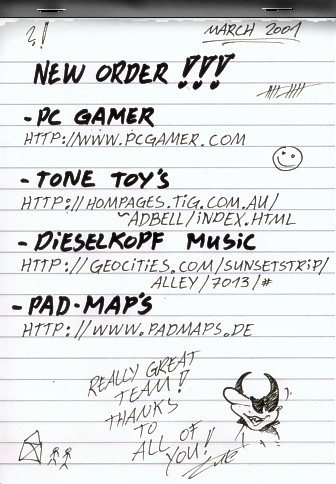 MARCH 2001
NEW ORDER !!!
- PC GAMER
HTTP://WWW.PCGAMER.COM
- TONE TOY'S
HTTP://HOMPAGES.TIG.COM.AU/
~ADBELL/INDEX.HTML
- DIESELKOPF MUSIC
HTTP://GEOCITIES.COM/SUNSETSTRIP/
ALLEY/7013/#
- PAD-MAP'S
HTTP://WWW.PADMAPS.DE
REALLY GREAT
TEAM!
THANKS
TO
ALL OF
YOU!